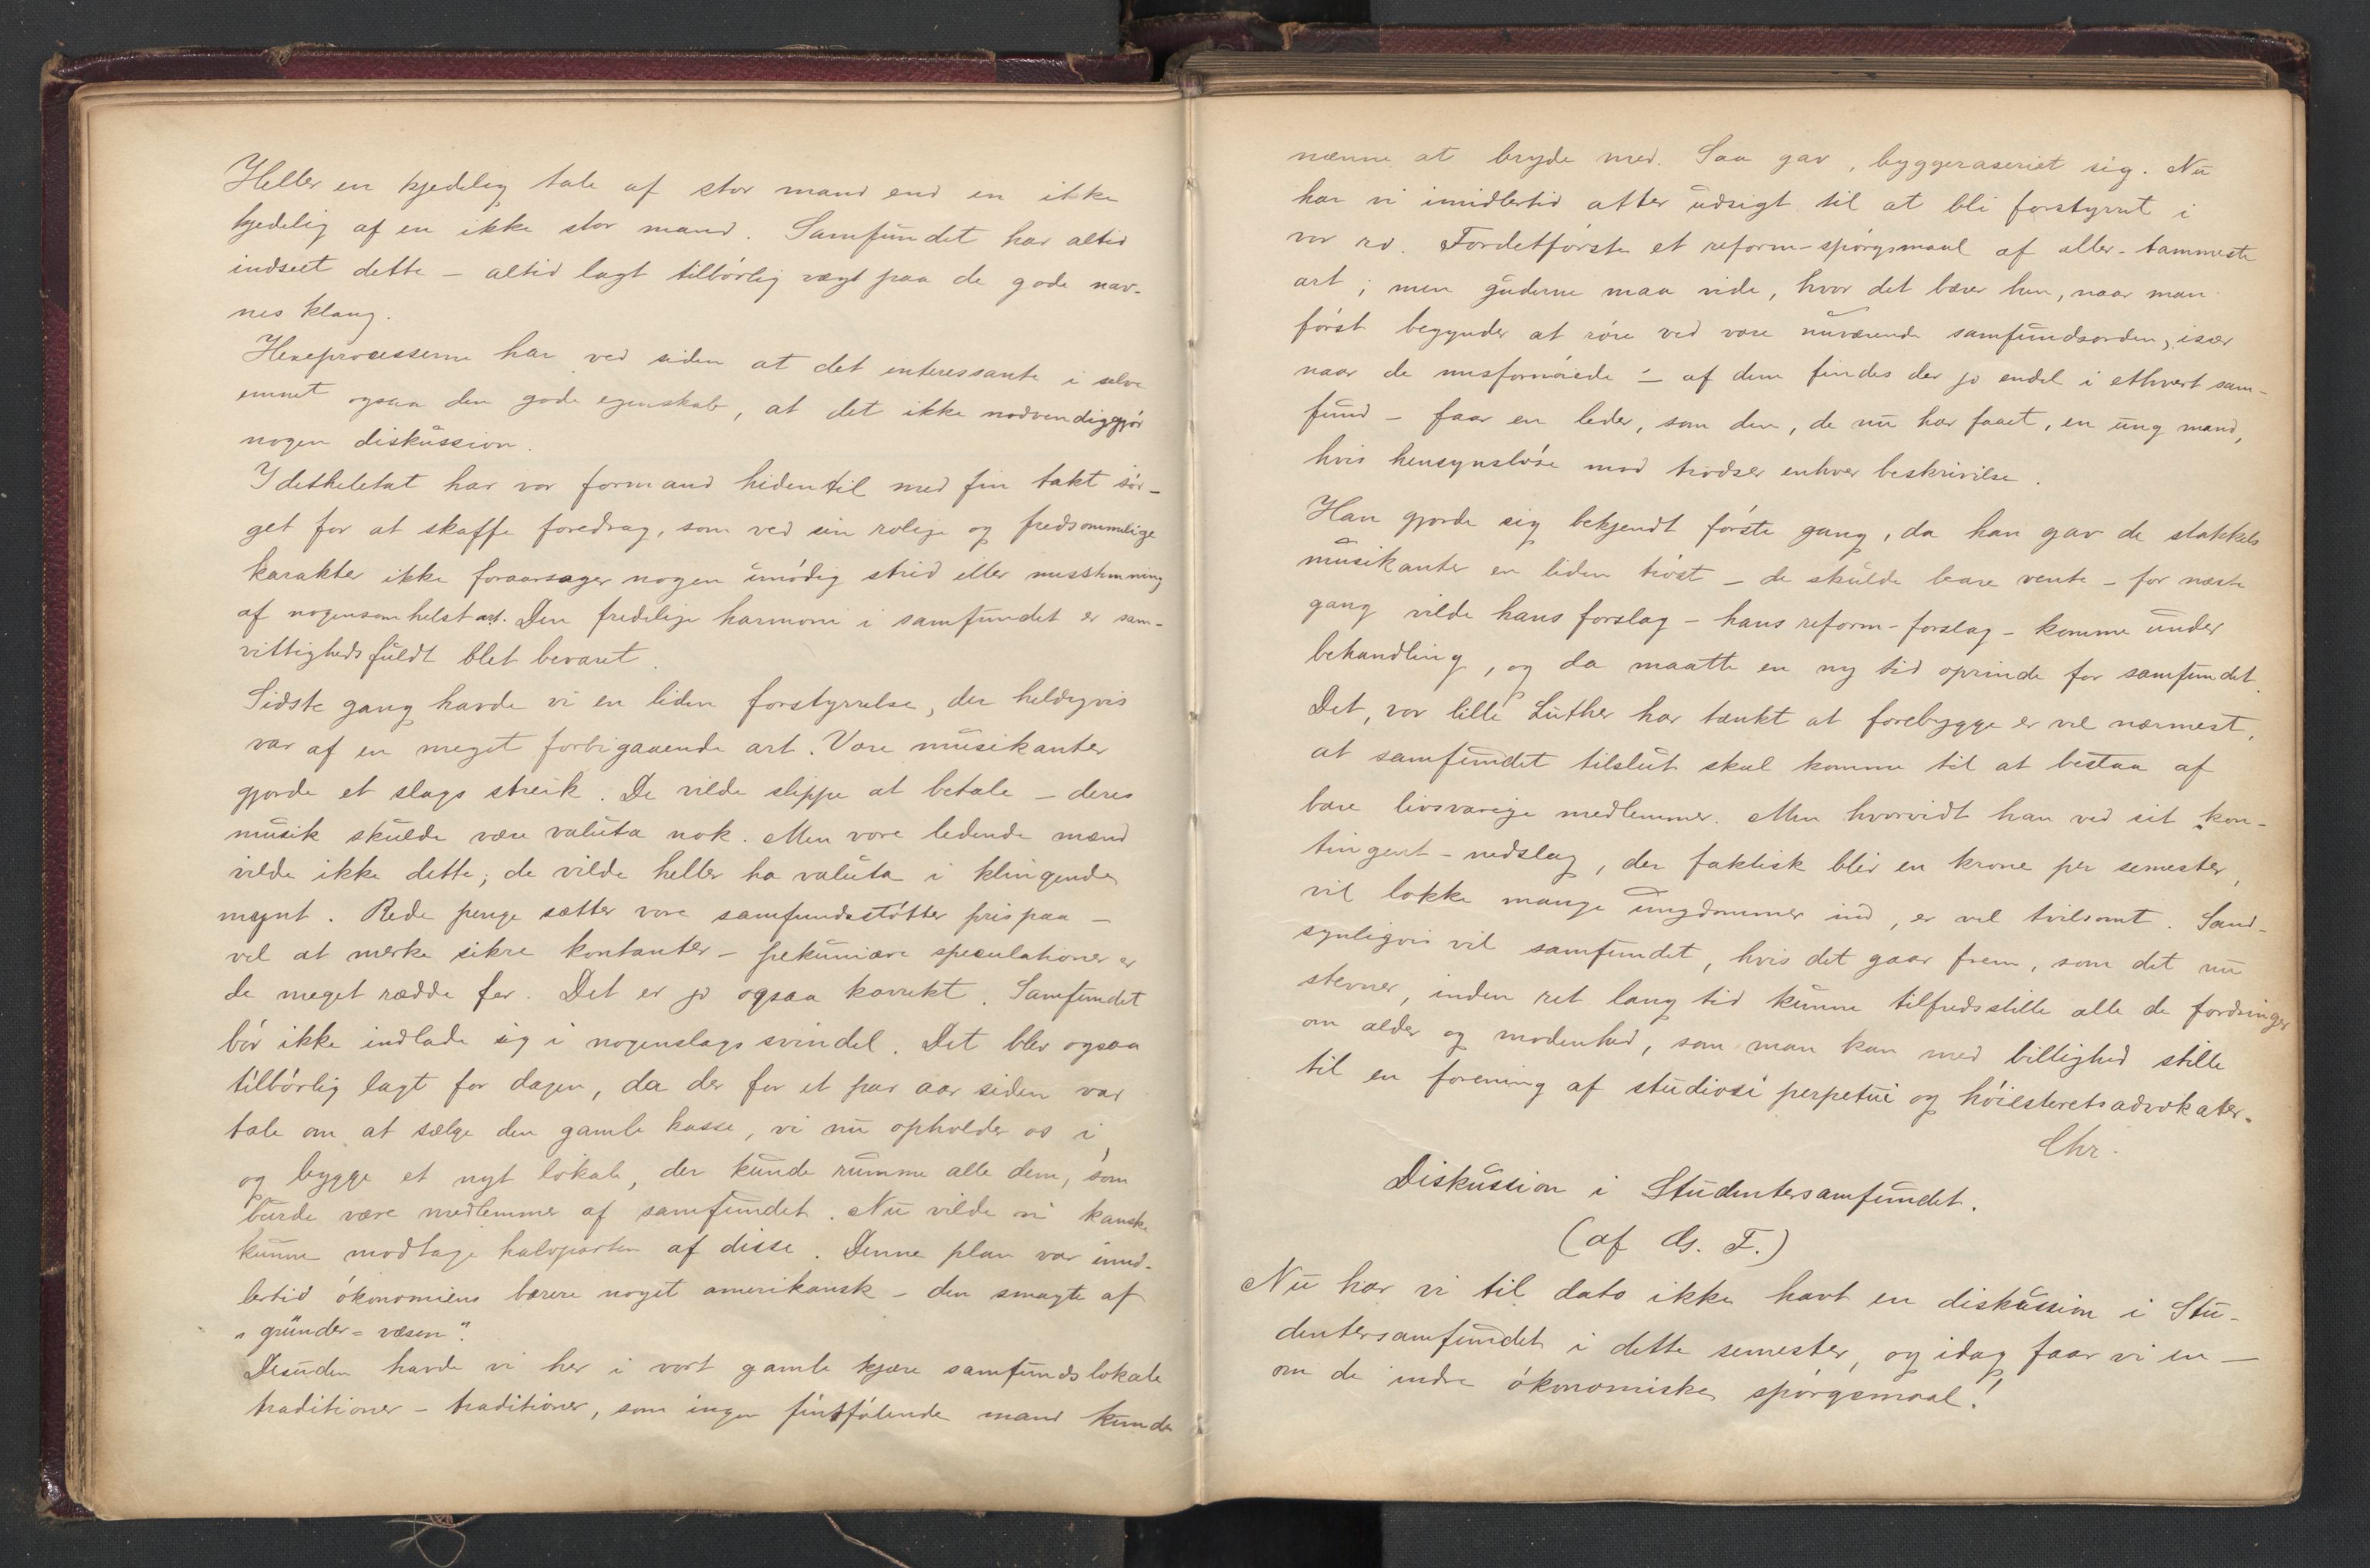 Heller en kjedelig tale af stor mand end en ikke
kjedelig af en ikke stor mand. Samfundet har altid
indseet dette – altid lagt tilbørlig vægt paa de gode nav-
nes klang.
Hexeprocesserne har ved siden at det interessante i selve
emnet ogsaa den gode egenskab, at det ikke nødvendiggjør
nogen diskussion.
I detheletat har vor formand hidentil med fin takt sør-
get for at skaffe foredrag, som ved sin rolige og fredsommelige
karakter ikke foraarsager nogen unødig strid eller misstemning
af nogensomhelst art. Den fredelige harmoni i samfundet er sam-
vittighedsfuldt blet bevaret.
Sidste gang havde vi en liden forstyrrelse, der heldigvis
var af en meget forbigaaende art. Vore musikanter
gjorde et slags streik. De vilde slippe at betale – deres
musik skulde være valuta nok. Men vore ledende mænd
vilde ikke dette; de vilde heller ha valuta i klingende
mynt. Rede penge sætter vore samfundsstøtter pris paa –
vel at merke sikre kontanter – pekuniære speculationer er
de meget rædde for. Det er jo ogsaa korrekt. Samfundet
bør ikke indlade sig i nogenslags svindel. Det blev ogsaa
tilbørlig lagt for dagen, da der for et par aar siden var
tale om at sælge den gamle kasse, vi nu opholder os i,
og bygge et nyt lokale, der kunde rumme alle dem, som
burde være medlemmer af samfundet. Nu vilde vi kanske
kunne modtage halvparten af disse. Denne plan var imid-
lertid økonomiens bærere noget amerikansk – den smagte af
„gründer=væsen".
Desuden havde vi her i vort gamle kjære samfundslokale
traditioner – traditioner, som ingen fintfølende mand kunde
nænne at bryde med. Saa gav byggeraseriet sig. Nu
har vi imidlertid atter udsigt til at bli forstyrret i
vor ro. Fordetførste et reform-spørgsmaal af aller-tammeste
art; men guderne maa vide, hvor det bærer hen, naar man
først begynder at røre ved vore nuværende samfundsorden, især
naar de misfornøiede – af dem findes der jo endel i ethvert sam-
fund – faar en leder, som den, de nu har faaet, en ung mand,
hvis hensynsløse mod trodser enhver beskrivelse.
Han gjorde sig bekjendt første gang, da han gav de stakkels
musikanter en liden trøst – de skulde bare vente – for næste
gang vilde hans forslag – hans reform-forslag – komme under
behandling, og da maatte en ny tid oprinde for samfundet.
Det, vor lille Luther har tænkt at forebygge er vel nærmest,
at samfundet tilslut skal komme til at bestaa af
bare livsvarige medlemmer. Men hvorvidt han ved sit kon-
tingent-nedslag, der faktisk blir en krone per semester,
vil lokke mange ungdommer ind, er vel tvilsomt. Sand-
synligvis vil samfundet, hvis det gaar frem, som det nu
stevner, inden ret lang tid kunne tilfredsstille alle de fordringer
om alder og modenhed, som man kan med billighed stille
til en forening af studiosi perpetui og høiesteretsadvokater.
Chr.
Diskussion i Studentersamfundet.
(af G. F.)
Nu har vi til dato ikke havt en diskussion i Stu-
dentersamfundet i dette semester, og idag faar vi en –
om de indre økonomiske spørgsmaal!